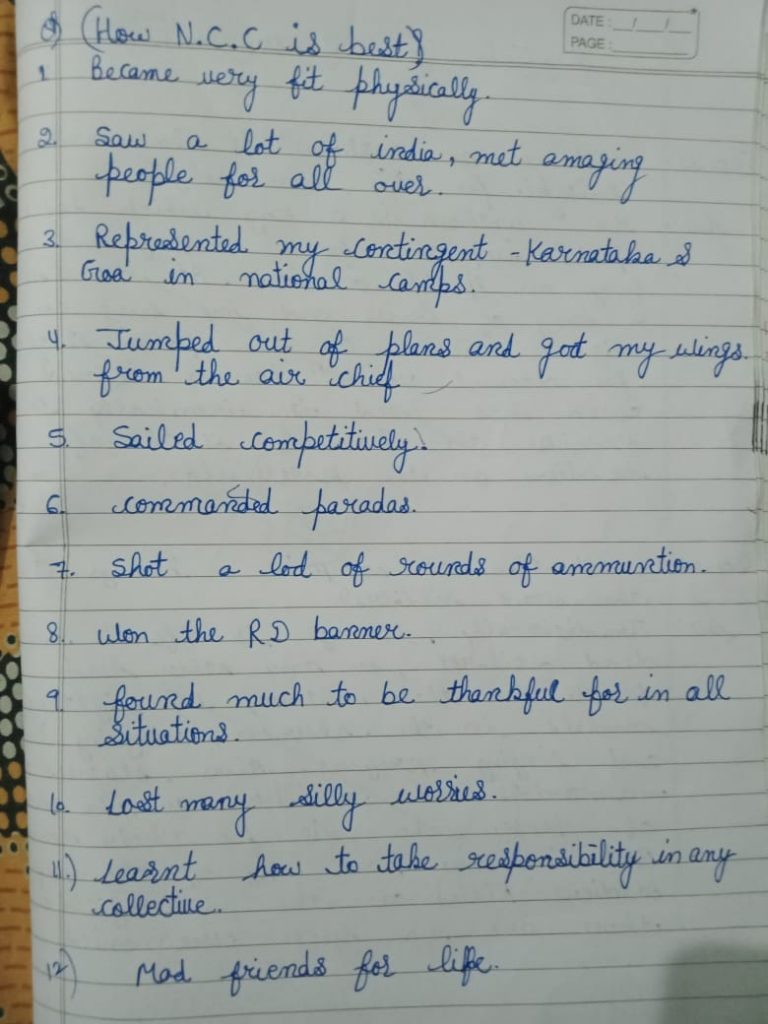 Q) (How N.C.C is best?
DATE: _/_/_
PAGE: ____
1 Became very fit physically.
2. Saw a lot of india, met amaging
people for all over.
3. Represented my contingent - Karnataka &
Goa in national camps.
4. Jumped out of plans and got my wings.
from the air chief
5. Sailed competitively.
6. commanded paradas.
7. Shot a lod of rounds of ammuntion.
8. won the R.D banner.
9. found much to be thankful for in all
situations.
10. Lost many silly worries.
11.) Learnt how to take responsibility in any
collective.
12) Mad friends for life.